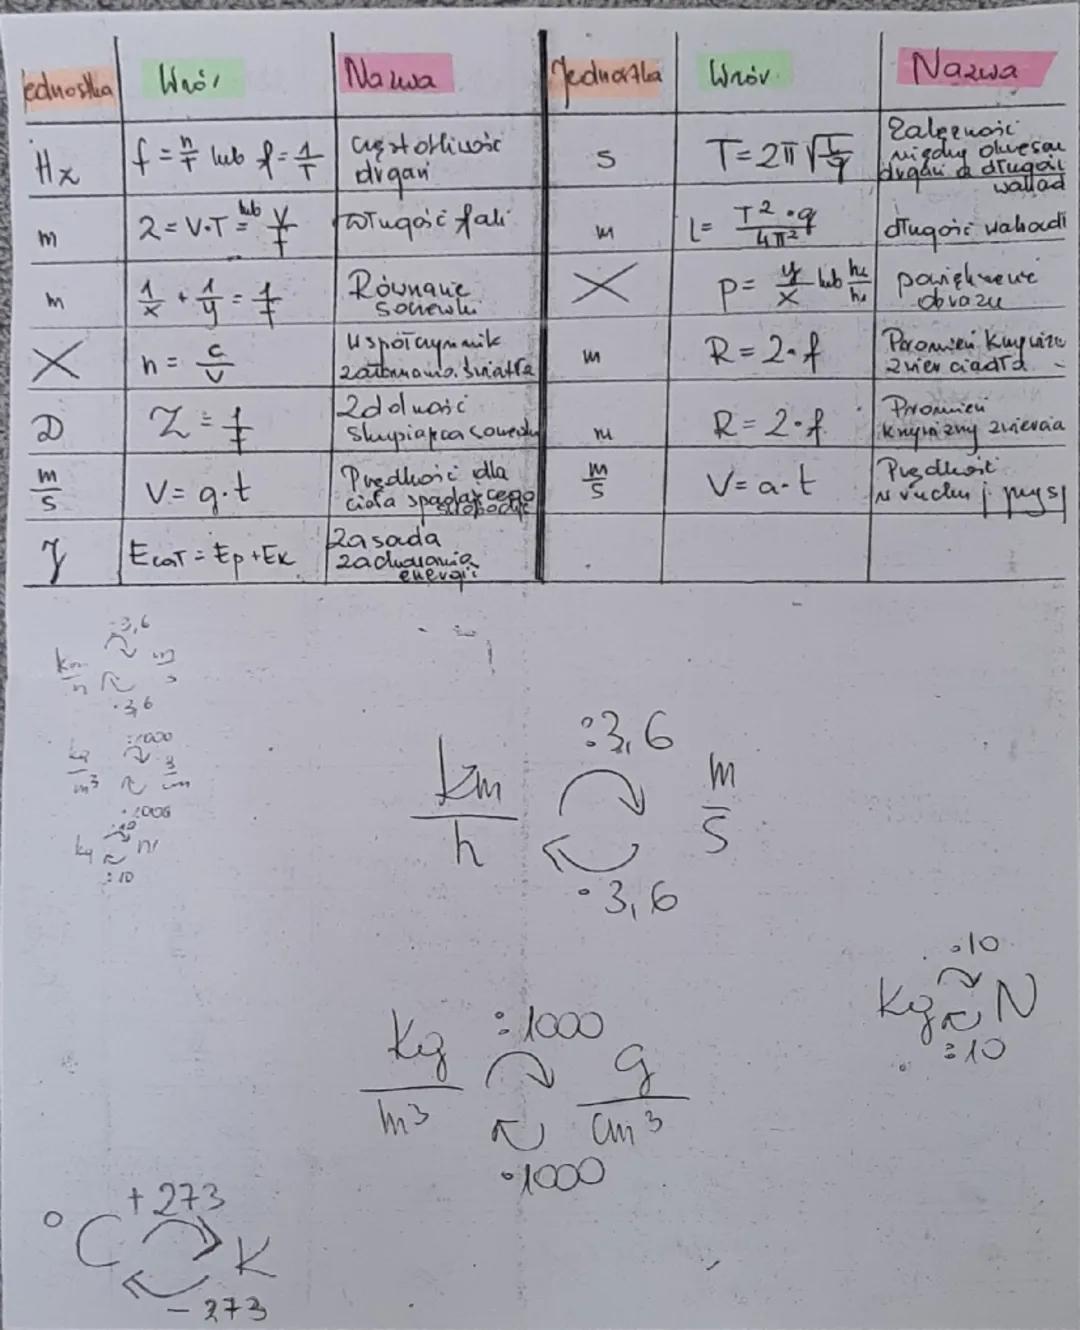 Jednostka Wzór Nazwa Jednostka Wzór Nazwa
Hz f = n/T lub f = 1/T częstotliwość drgań s T = 2π√(l/g) Zależność między okresem drgań a długość wahad
m λ = V·T = lub V/f Długość fali m l = T²·g/4π² długość wahadł
m 1/x + 1/y = 1/f Równanie soczewki X p = y/x lub powiększenie obrazu
X n = c/v współczynnik załamania światła m R = 2·f Promień krzywizn zwierciadła
D Z = 1/f Zdolność skupiająca soczewki m R = 2·f Promień krzywizny zwiercia
m/s V = g·t Prędkość dla ciała spadającego swobodnie m/s V = a·t Prędkość w ruchu j. przysp
J Ecał = Ep + Ek Zasada zachowania energii
:3,6
km/h m/s
·3,6
:1000
kg/m³ g/cm³
·1000
·10
kg N
:10
:3,6
km/h m/s
·3,6
·10
kg N
:10
:1000
kg/m³ g/cm³
·1000
+273
°C K
-273